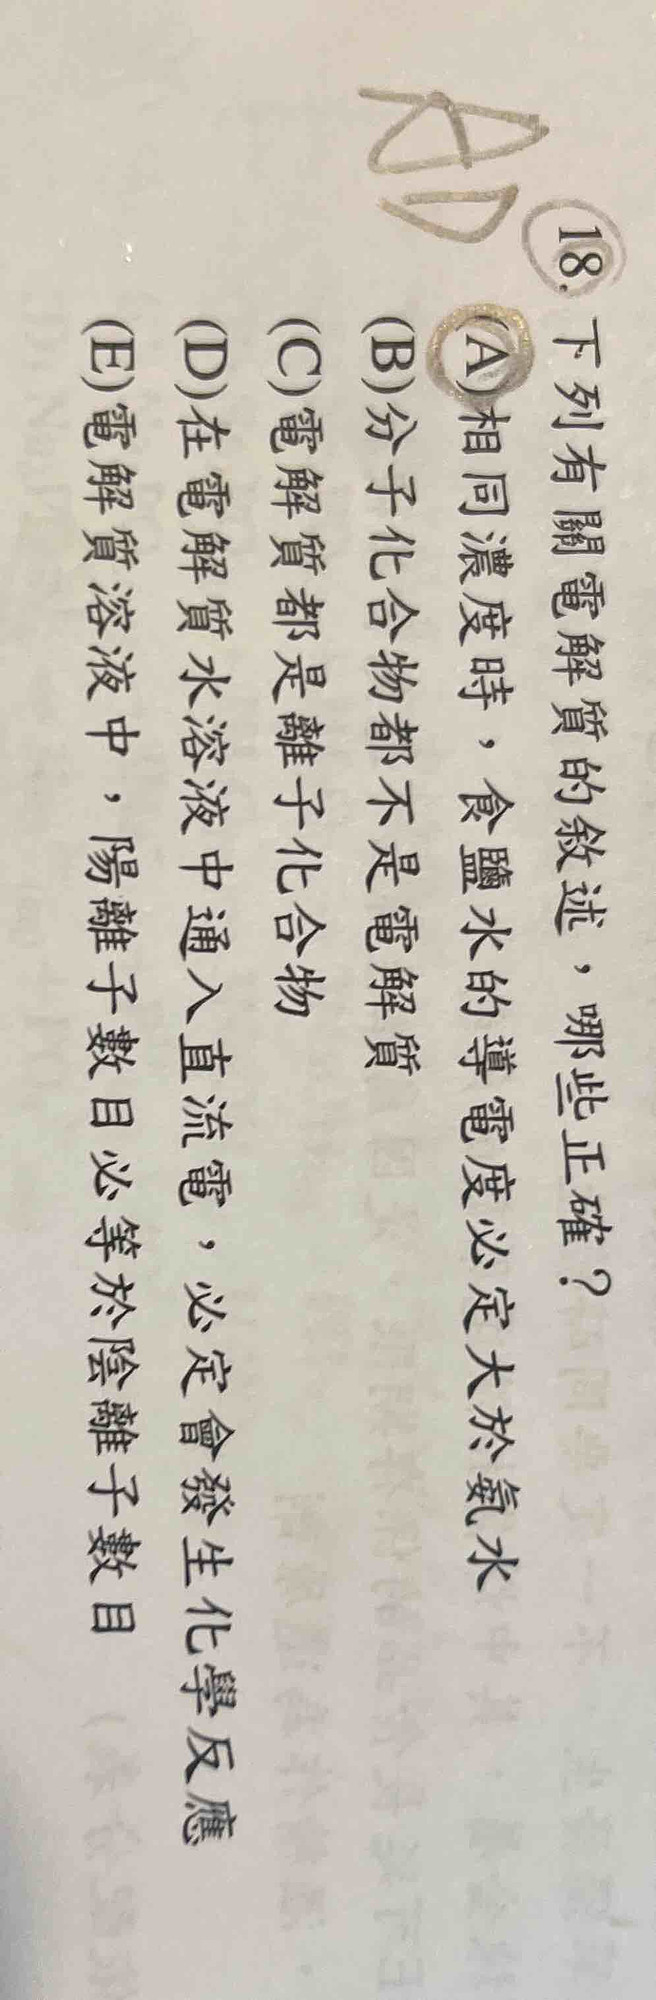 AD
18.下列有關電解質的敘述，哪些正確？
(A)相同濃度時，食鹽水的導電度必定大於氨水
(B)分子化合物都不是電解質
(C)電解質都是離子化合物
(D)在電解質水溶液中通入直流電，必定會發生化學反應
(E)電解質溶液中，陽離子數目必等於陰離子數目